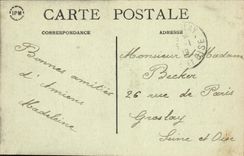 CARTE POSTALE
IPM
CORRESPONDANCE
ADRESSE
Bonnes amitiés
d'Amiens
Madeleine
Monsieur et Madame
Becker
26 rue de Paris
Groslay
Seine et Oise